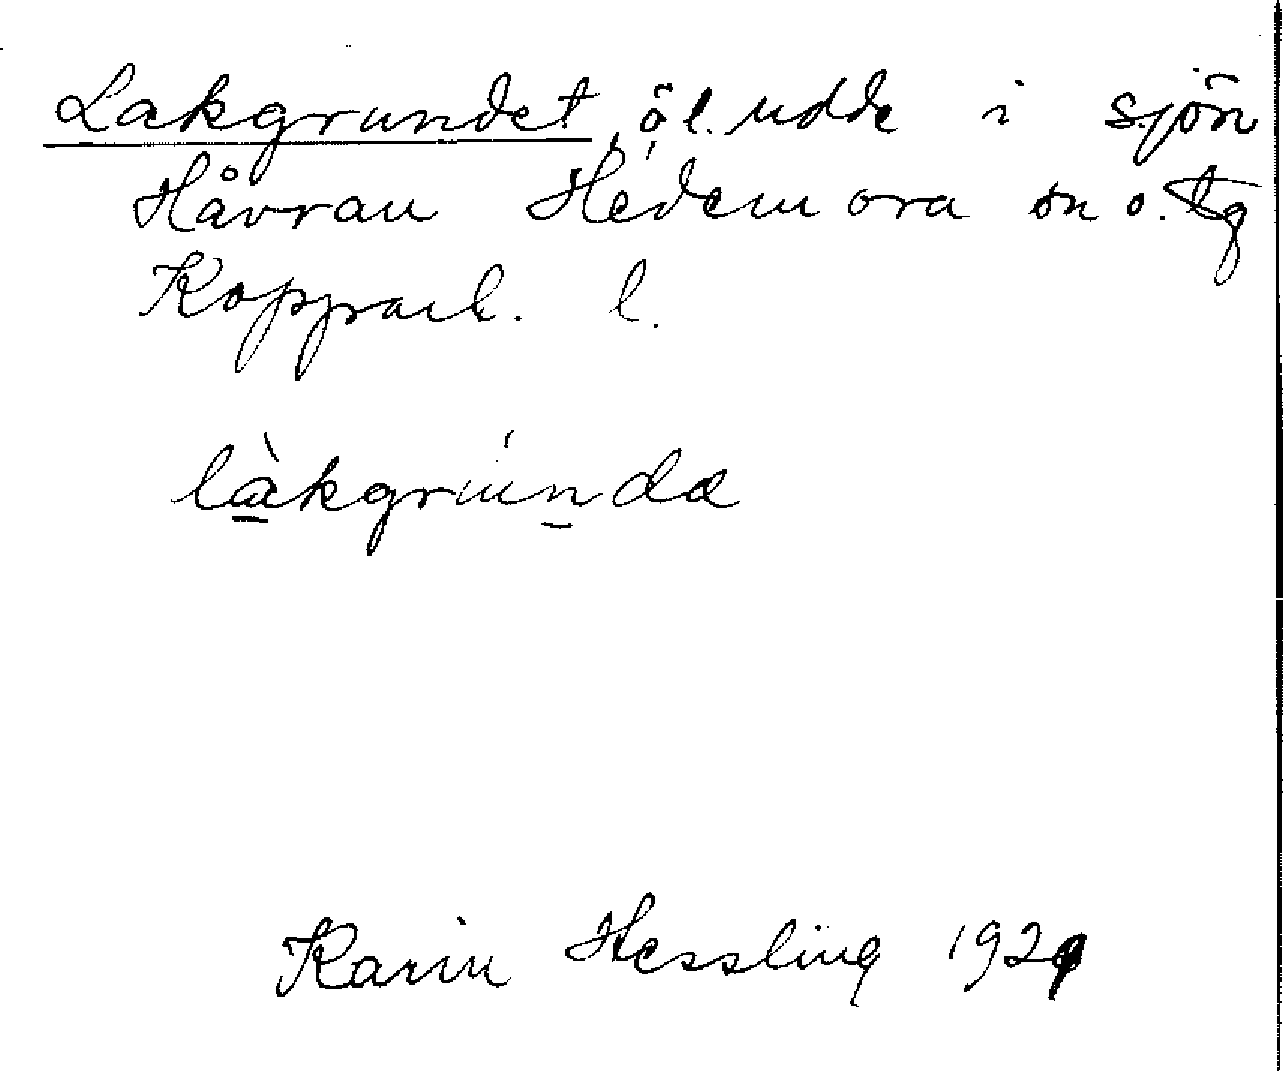 Lakgrundet, ö l. udde i sjön
Håvran Hedemora sn o. tg
Kopparb. l.
làkgrúnda
Karin Hessling 1929